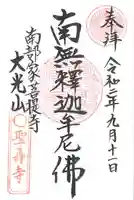 奉拝
令和二年九月十一日
南無釋迦牟尼佛
南部家菩提寺
大光山
聖寿寺